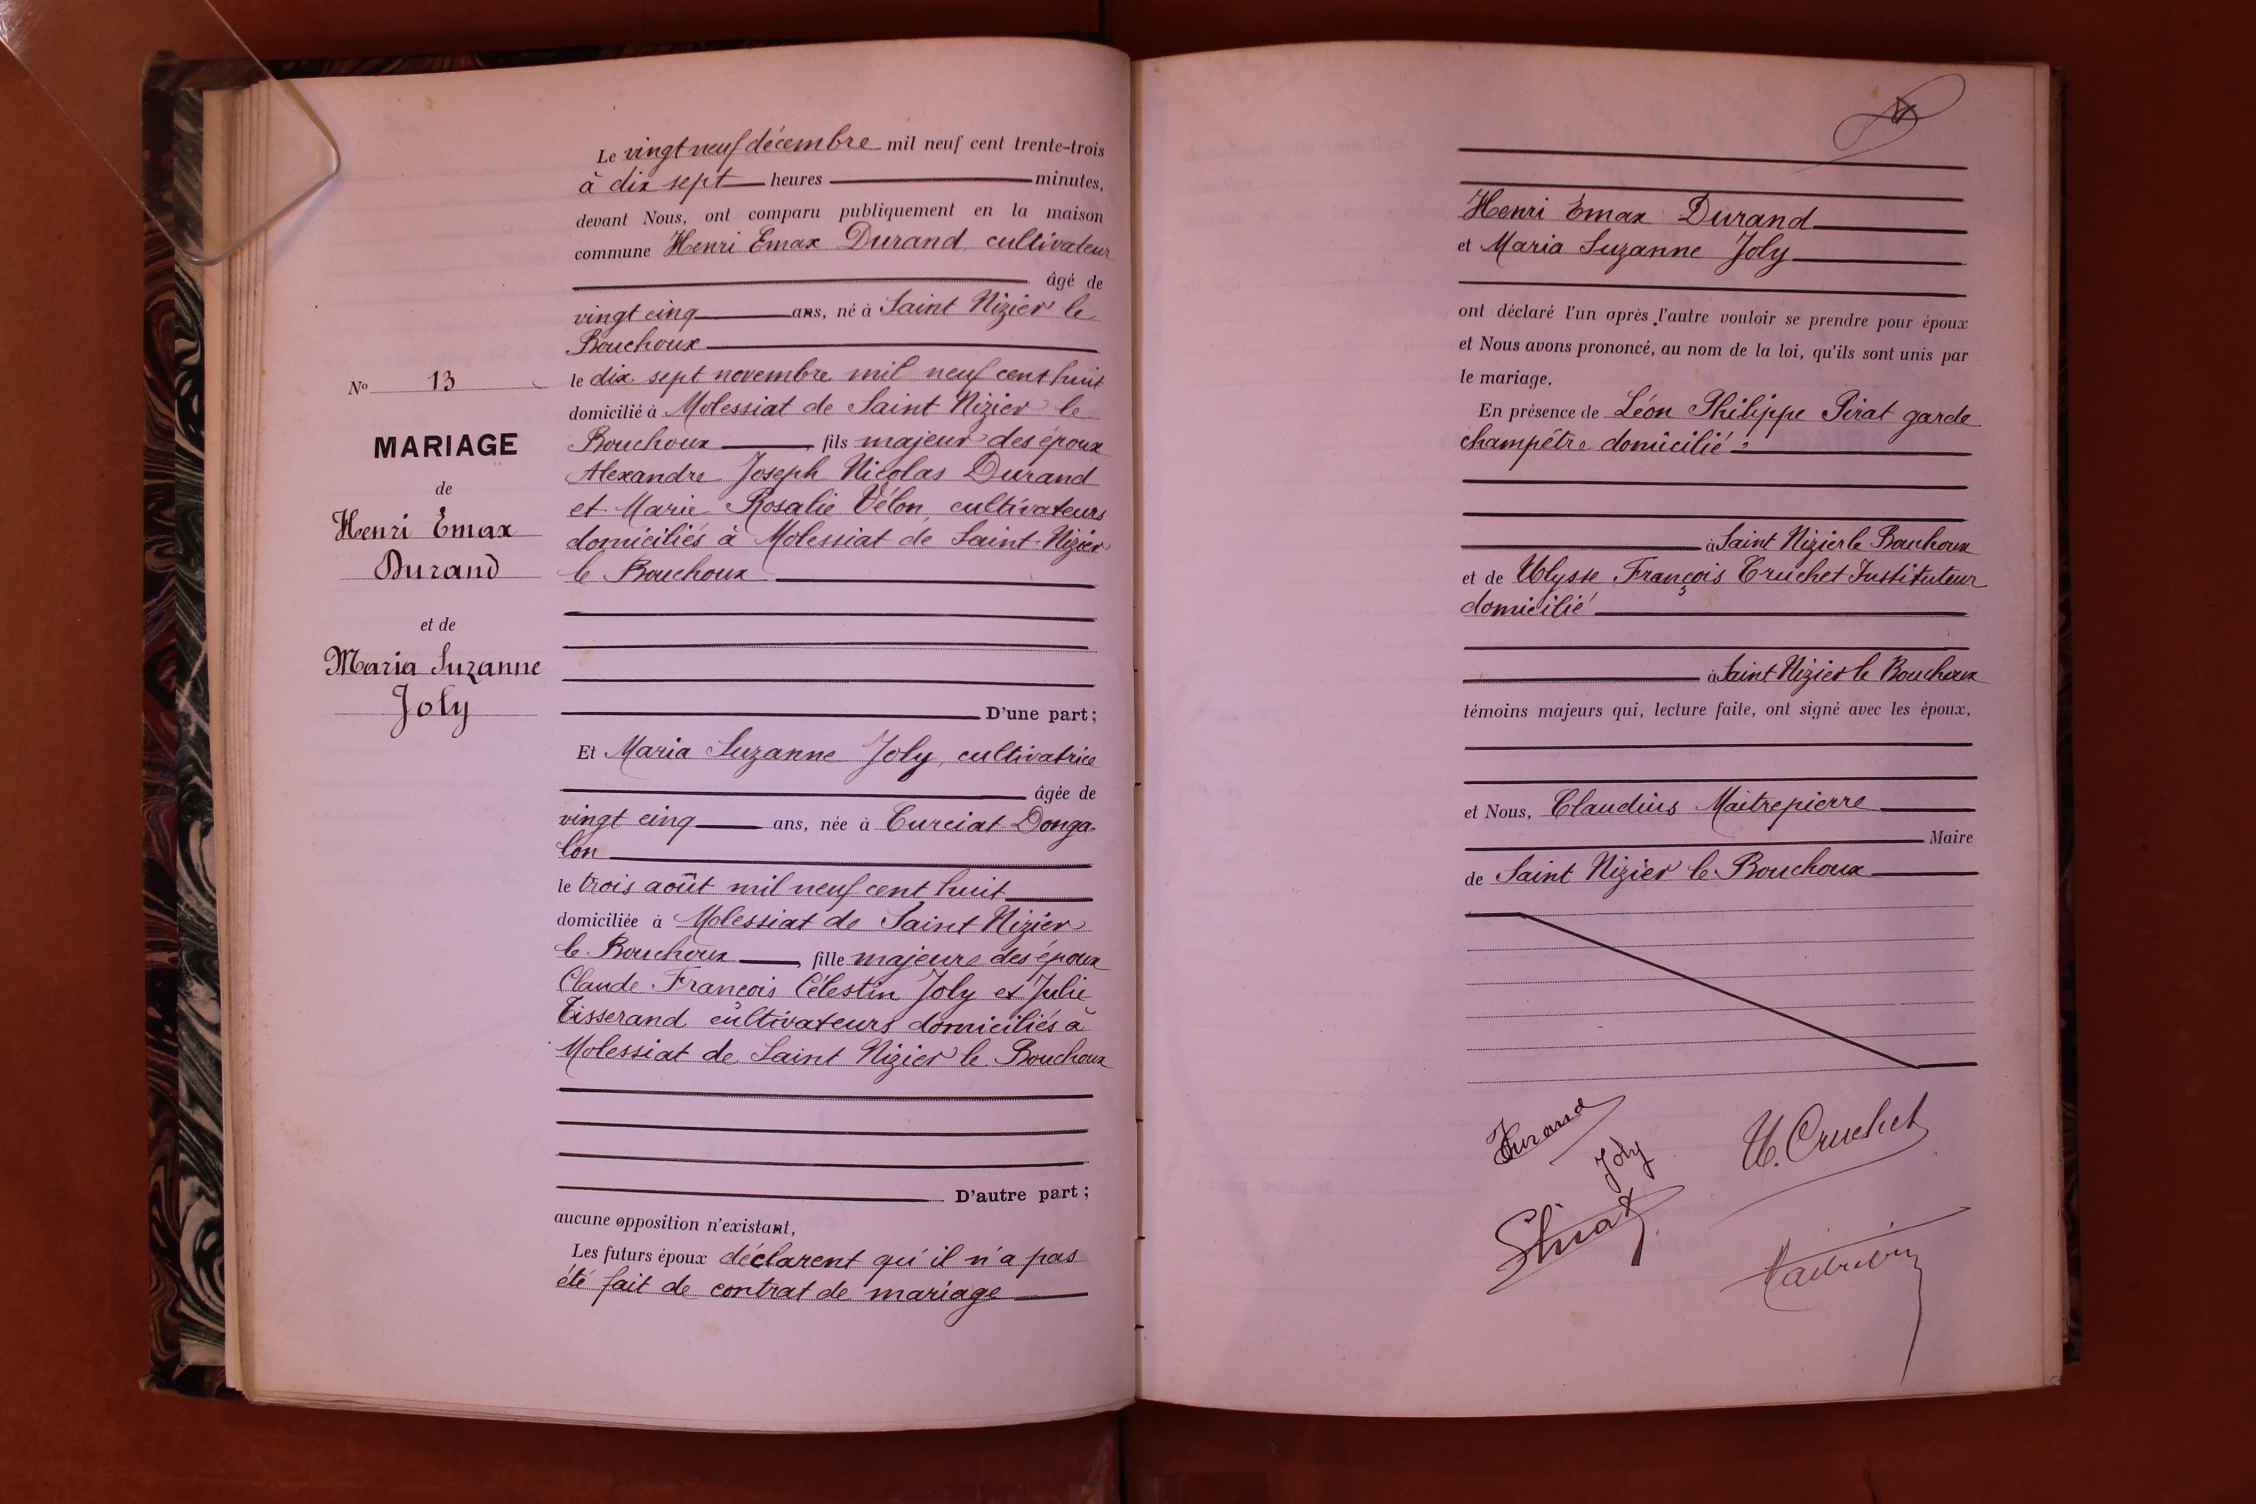 Le vingt neuf décembre mil neuf cent trente-trois
à dix sept heures minutes,
devant Nous, ont comparu publiquement en la maison
commune Henri Emax Durand, cultivateur
âgé de
vingt cinq ans, né à Saint Nizier le
Bouchoux
le dix sept novembre mil neuf cent huit
domicilié à Molessiat de Saint Nizier le
Bouchoux, fils majeur des époux
Alexandre Joseph Nicolas Durand
et Marie Rosalie Vélon, cultivateurs
domiciliés à Molessiat de Saint-Nizier
le Bouchoux
D'une part;
Et Maria Suzanne Joly, cultivatrice
âgée de
vingt cinq ans, née à Curciat-Donga-
lon
le trois août mil neuf cent huit
domiciliée à Molessiat de Saint Nizier
le Bouchoux, fille majeure des époux
Claude François Célestin Joly et Julie
Tisserand cultivateurs domiciliés à
Molessiat de Saint Nizier le Bouchoux
D'autre part;
aucune opposition n'existant,
Les futurs époux déclarent qu'il n'a pas
été fait de contrat de mariage
No 13
MARIAGE
de
Henri Emax
Durand
et de
Maria Suzanne
Joly
Henri Emax Durand
et Maria Suzanne Joly
ont déclaré l'un après l'autre vouloir se prendre pour époux
et Nous avons prononcé, au nom de la loi, qu'ils sont unis par
le mariage.
En présence de Léon Philippe Pirat garde
champêtre domicilié
à Saint Nizier le Bouchoux
et de Ulysse François Cruchet Instituteur
domicilié
à Saint Nizier le Bouchoux
témoins majeurs qui, lecture faite, ont signé avec les époux,
et Nous, Claudius Maitrepierre
Maire
de Saint Nizier le Bouchoux
Durand
Joly
U. Cruchet